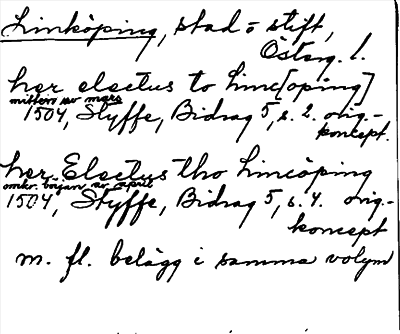 Linköping, stad o stift,
Österg. l.
her electus to Linc[oping]
mitten av mars
1504, Styffe, Bidrag 5, s. 2. orig.-
koncept.
her Electus tho Lincöping
omkr. början av april
1504, Styffe, Bidrag 5, s. 4. orig.-
koncept
m. fl. belägg i samma volym